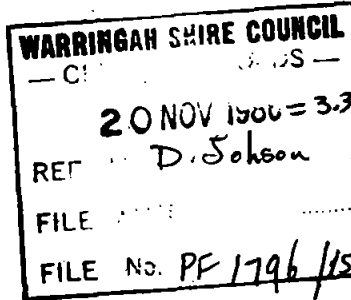 WARRINGAH SHIRE COUNCIL
20 NOV = 3.3
D. Johson
FILE
FILE No. PF 1796/15